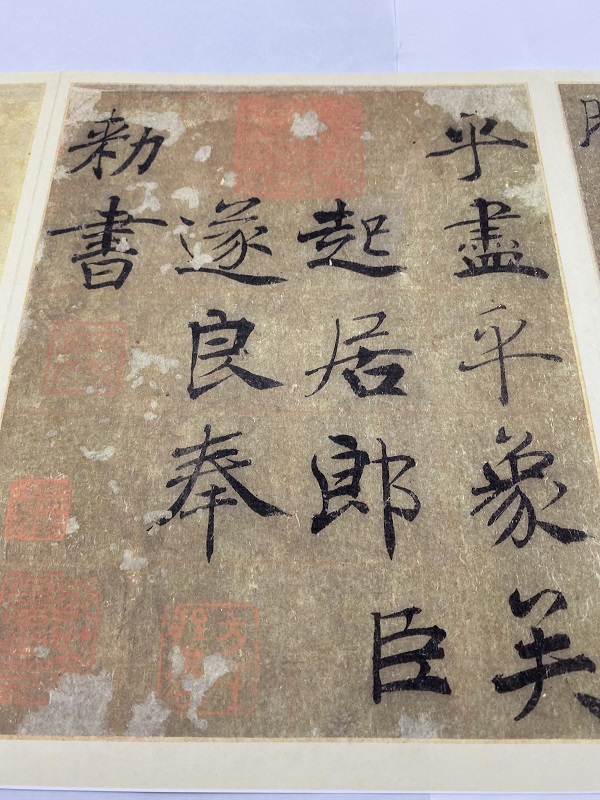 乎盡乎象矣
起居郎臣
遂良奉
勅書